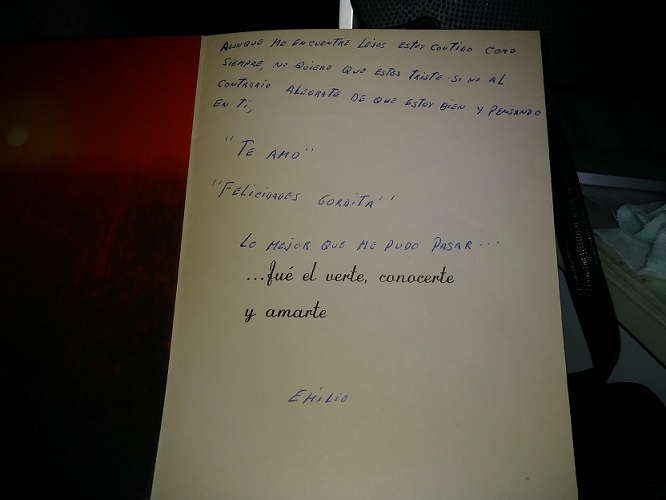 AUNQUE ME ENCUENTRE LEJOS ESTOY CONTIGO COMO
SIEMPRE, NO QUIERO QUE ESTES TRISTE SI NO AL
CONTRARIO ALEGRATE DE QUE ESTOY BIEN Y PENSANDO
EN TI,
"TE AMO"
"FELICIDADES GORDITA"
LO MEJOR QUE ME PUDO PASAR...
...fué el verte, conocerte
y amarte
EMILIO